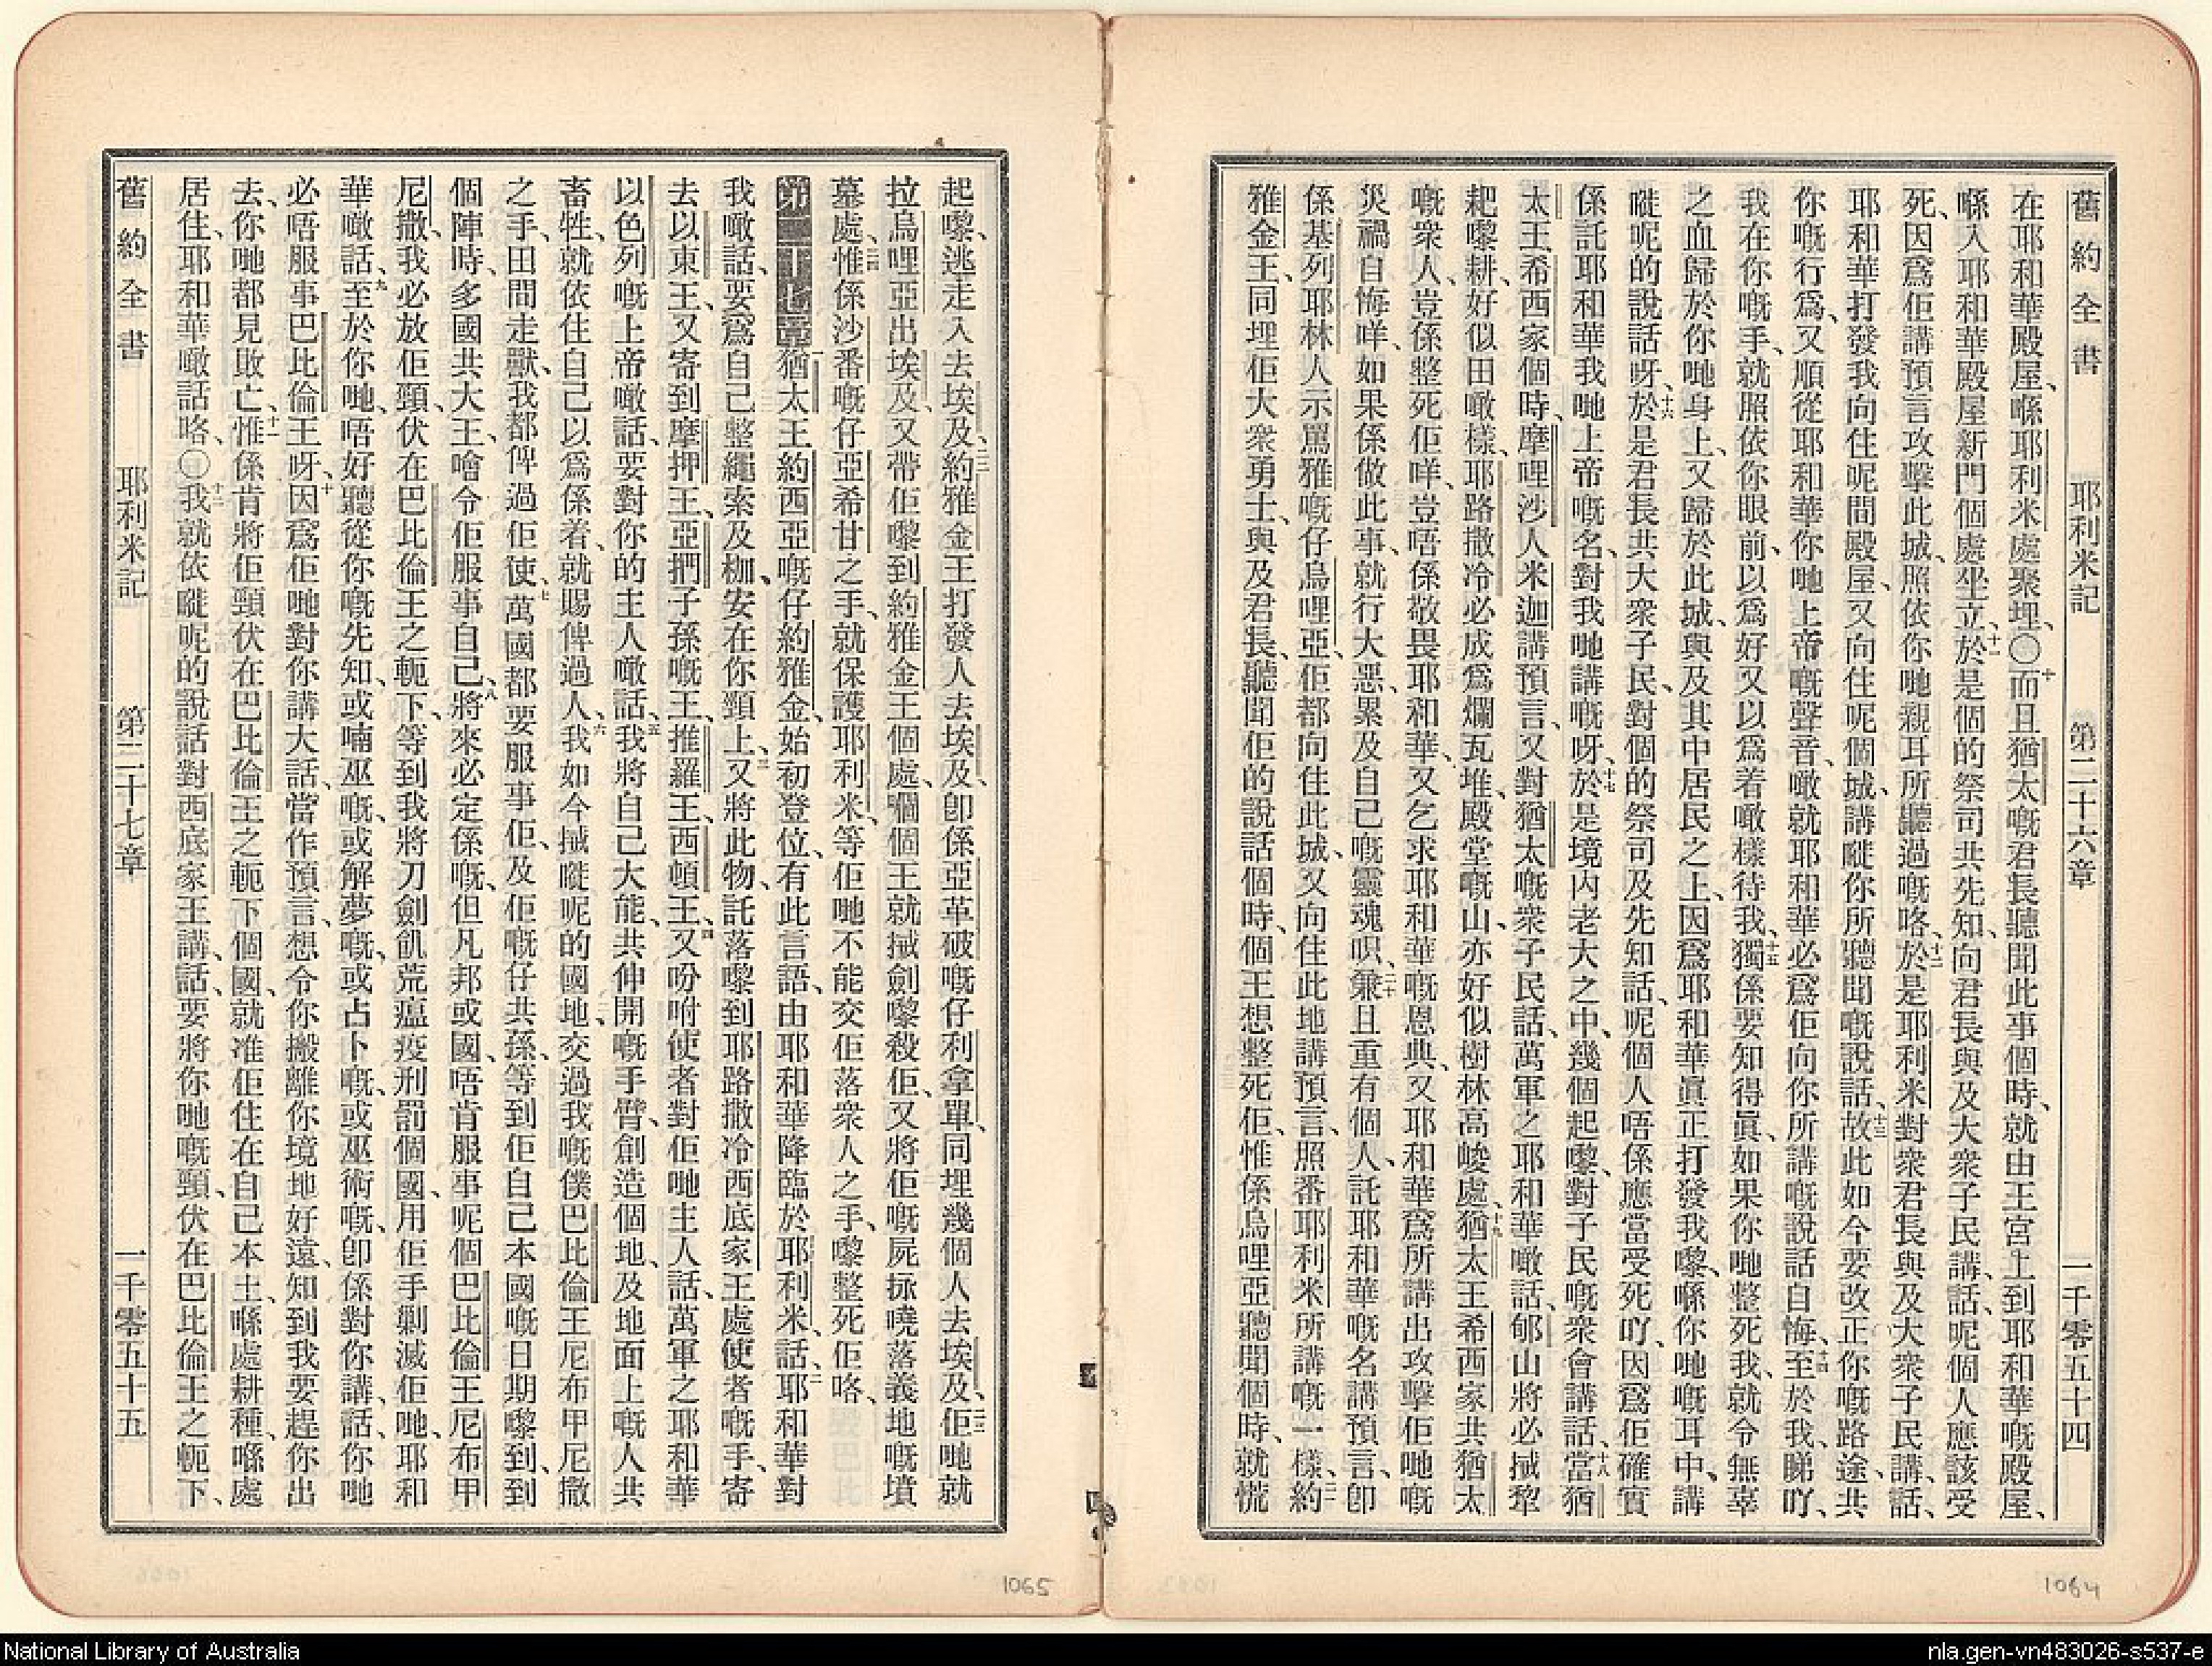 舊約全書 耶利米記 第二十六章 一千零五十四
在耶和華殿屋、喺耶利米處聚埋、〇十而且猶太嘅君長聽聞此事個時、就由王宮上到耶和華嘅殿屋、
喺入耶和華殿屋新門個處坐立、十一於是個的祭司共先知、向君長與及大衆子民講、話、呢個人應該受
死、因爲佢講預言攻擊此城、照依你哋親耳所聽過嘅咯、十二於是耶利米對衆君長與及大衆子民講、話、
耶和華打發我向住呢間殿屋、又向住呢個城、講嗻你所聽聞嘅說話、十三故此如今要改正你嘅路途、共
你嘅行爲、又順從耶和華你哋上帝嘅聲音、噉就耶和華必爲佢向你所講嘅說話自悔、十四至於我、睇吖、
我在你嘅手、就照依你眼前、以爲好又以爲着噉樣待我、十五獨係要知得眞、如果你哋整死我、就令無辜
之血歸於你哋身上、又歸於此城、與及其中居民之上、因爲耶和華眞正打發我嚟、喺你哋嘅耳中、講
嗻呢的說話呀、十六於是君長共大衆子民、對個的祭司及先知話、呢個人唔係應當受死吖、因爲佢確實
係託耶和華我哋上帝嘅名、對我哋講嘅呀、十七於是境內老大之中、幾個起嚟、對子民嘅衆會講話、十八當猶
太王希西家個時、摩哩沙人米迦講預言、又對猶太嘅衆子民話、萬軍之耶和華噉話、郇山將必搣犂
耙嚟耕、好似田噉樣、耶路撒冷必成爲爛瓦堆、殿堂嘅山、亦好似樹林高峻處、十九猶太王希西家共猶太
嘅衆人、豈係整死佢咩、豈唔係敬畏耶和華、又乞求耶和華嘅恩典、又耶和華爲所講出攻擊佢哋嘅
災禍自悔咩、如果係做此事、就行大惡、累及自己嘅靈魂呮、二十兼且重有個人、託耶和華嘅名講預言、卽
係基列耶林人示罵雅嘅仔烏哩亞、佢都向住此城、又向住此地講預言、照番耶利米所講嘅一樣、二一約
雅金王、同埋佢大衆勇士、與及君長、聽聞佢的說話個時、個王想整死佢、惟係烏哩亞聽聞個時、就慌
起嚟、逃走入去埃及、二二約雅金王打發人去埃及、卽係亞革破嘅仔利拿單、同埋幾個人去埃及、二三佢哋就
拉烏哩亞出埃及、又帶佢嚟到約雅金王個處、嗰個王就搣劍嚟殺佢、又將佢嘅屍掁嘵落義地嘅墳
墓處、二四惟係沙番嘅仔亞希甘之手、就保護耶利米、等佢哋不能交佢落衆人之手、嚟整死佢咯、
第二十七章 一猶太王約西亞嘅仔約雅金、始初登位、有此言語、由耶和華降臨於耶利米、話、二耶和華對
我噉話、要爲自己整繩索及枷、安在你頸上、三又將此物、託落嚟到耶路撒冷西底家王處使者嘅手、寄
去以東王、又寄到摩押王、亞捫子孫嘅王、推羅王、西頓王、四又吩咐使者對佢哋主人話、萬軍之耶和華
以色列嘅上帝噉話、要對你的主人噉話、五我將自己大能、共伸開嘅手臂、創造個地、及地面上嘅人共
畜牲、就依住自己以爲係着、就賜俾過人、六我如今搣嗻呢的國地、交過我嘅僕巴比倫王尼布甲尼撒
之手、田間走獸、我都俾過佢使、七萬國都要服事佢、及佢嘅仔共孫、等到佢自己本國嘅日期嚟到、到
個陣時、多國共大王、噲令佢服事自己、八將來必定係嘅、但凡邦或國、唔肯服事呢個巴比倫王尼布甲
尼撒、我必放佢頸、伏在巴比倫王之軛下、等到我將刀劍飢荒瘟疫刑罰個國、用佢手剿滅佢哋、耶和
華噉話、九至於你哋、唔好聽從你嘅先知、或喃巫嘅、或解夢嘅、或占卜嘅、或巫術嘅、卽係對你講、話、你哋
必唔服事巴比倫王呀、十因爲佢哋對你講大話、當作預言、想令你搬離你境地好遠、知到我要趕你出
去、你哋都見敗亡、十一惟係肯將佢頸伏在巴比倫王之軛下個國、就准佢住在自己本土、喺處耕種、喺處
居住、耶和華噉話咯、〇十二我就依嗻呢的說話對西底家王講、話、要將你哋嘅頸、伏在巴比倫王之軛下、
舊約全書 耶利米記 第二十七章 一千零五十五
1065
1064
National Library of Australia
nla.gen-vn483026-s537-e